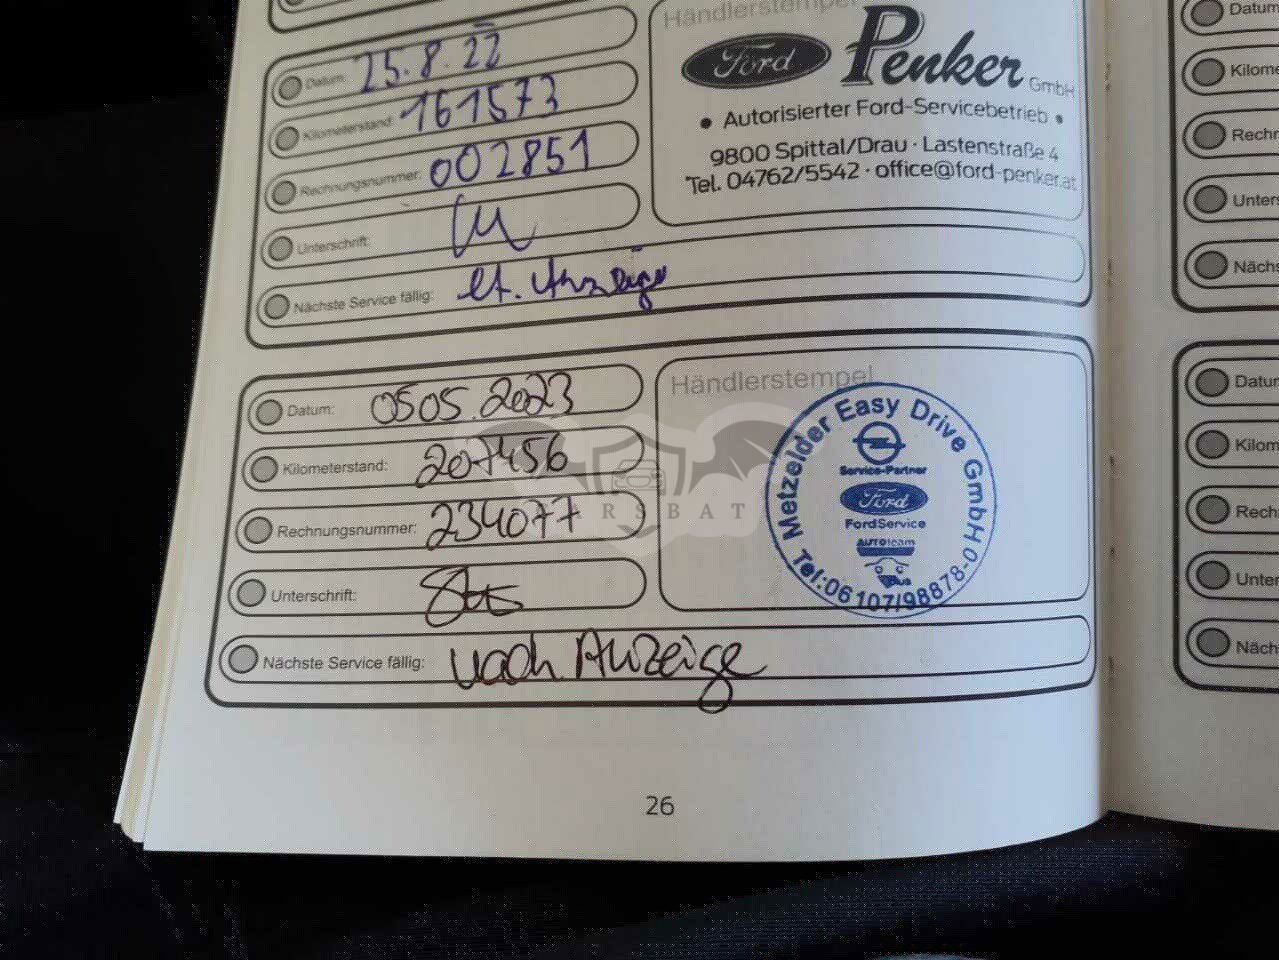 Händlerstempel
Datum: 25.8.22
Kilometerstand: 161573
Rechnungsnummer: 002851
Unterschrift:
Nächste Service fällig: lt. Anzeige
Ford Penker GmbH
• Autorisierter Ford-Servicebetrieb •
9800 Spittal/Drau · Lastenstraße 4
Tel. 04762/5542 · office@ford-penker.at
Händlerstempel
Datum: 05 05. 2023
Kilometerstand: 207456
Rechnungsnummer: 234077
Unterschrift:
Nächste Service fällig: nach Anzeige
Metzelder Easy Drive GmbH
Service-Partner
Ford
FordService
AUTOteam
plus
Tel:06107/98878-0
CARSBAT
26
Datum
Kilome
Rechn
Unters
Nächs
Datur
Kilom
Rech
Unter
Näch